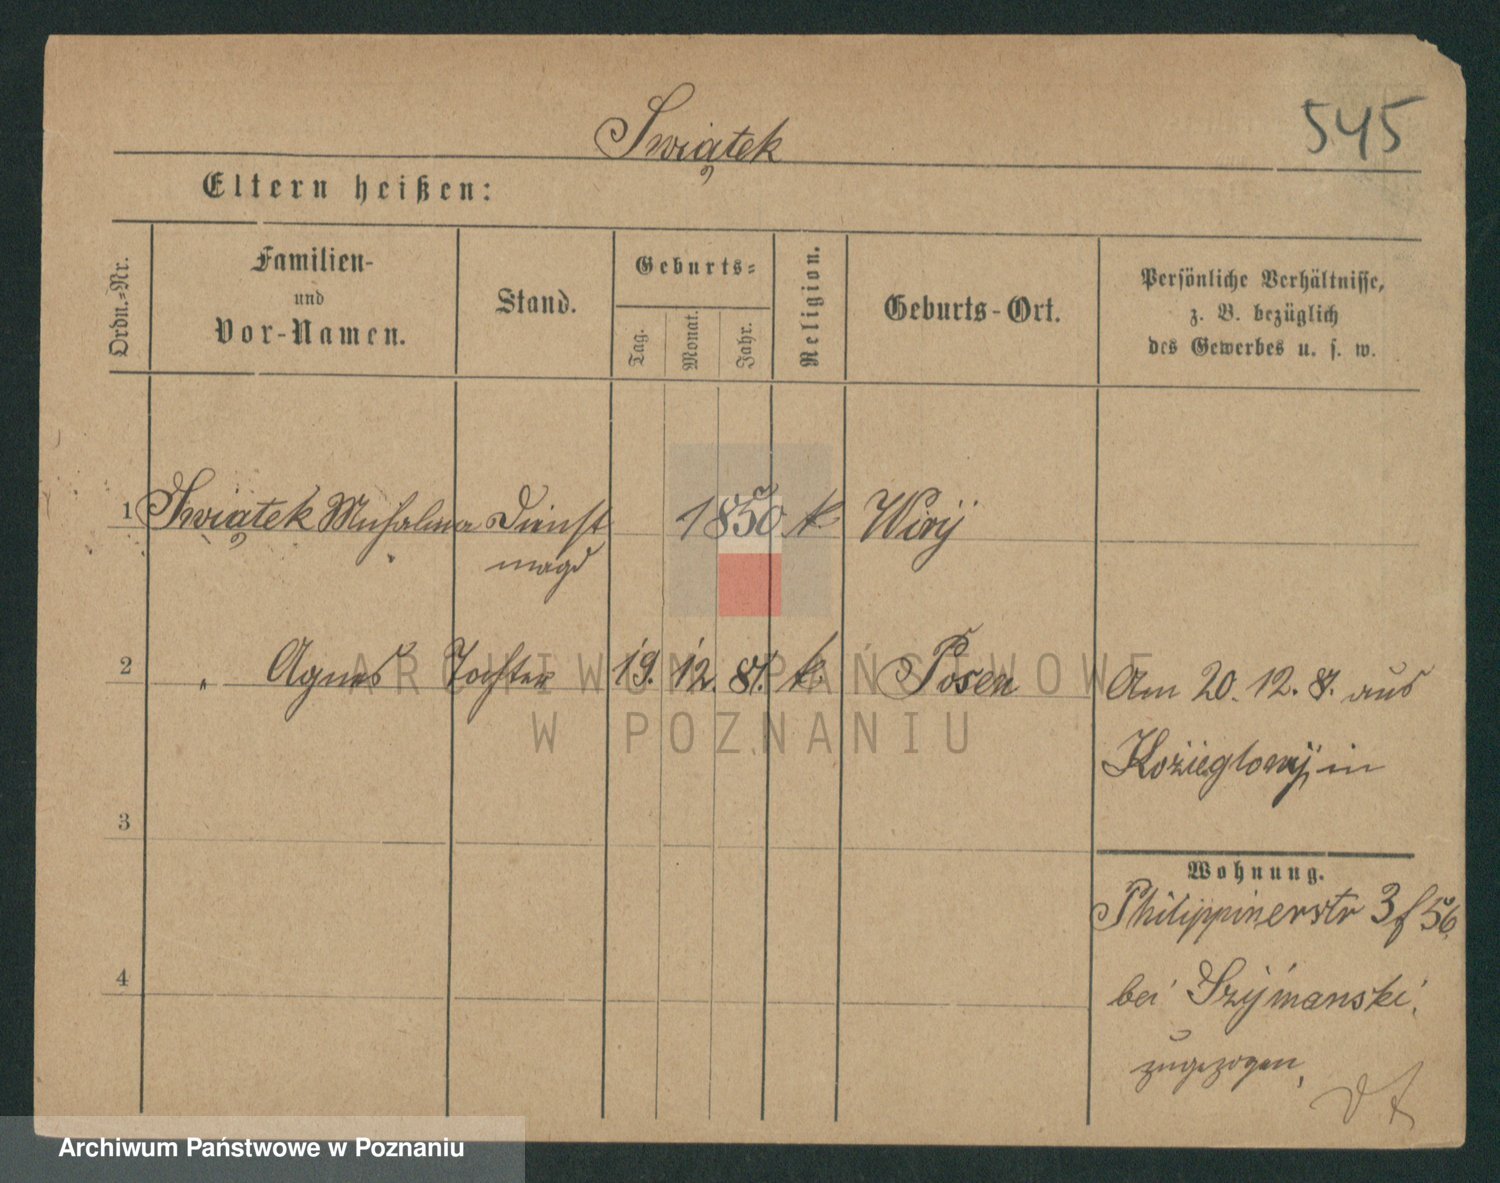 Swiątek
545
Eltern heißen:
Ordn.-Nr.
Familien-
und
Vor-Namen.
Stand.
Geburts-
Tag.
Monat.
Jahr.
Religion.
Geburts-Ort.
Persönliche Verhältnisse,
z. B. bezüglich
des Gewerbes u. s. w.
1 Swiątek Dienst 1850 k Wirÿ
magd
2 " Agnes Tochter 19. 12. 81. k. Posen Am 20. 12. 8. aus
ARCHIWUM PAŃSTWOWE
W POZNANIU
Kozieglowÿ in
3
Wohnung.
Philippinerstr 3 f 56.
4
bei Szÿmanski
zugezogen,
Archiwum Państwowe w Poznaniu